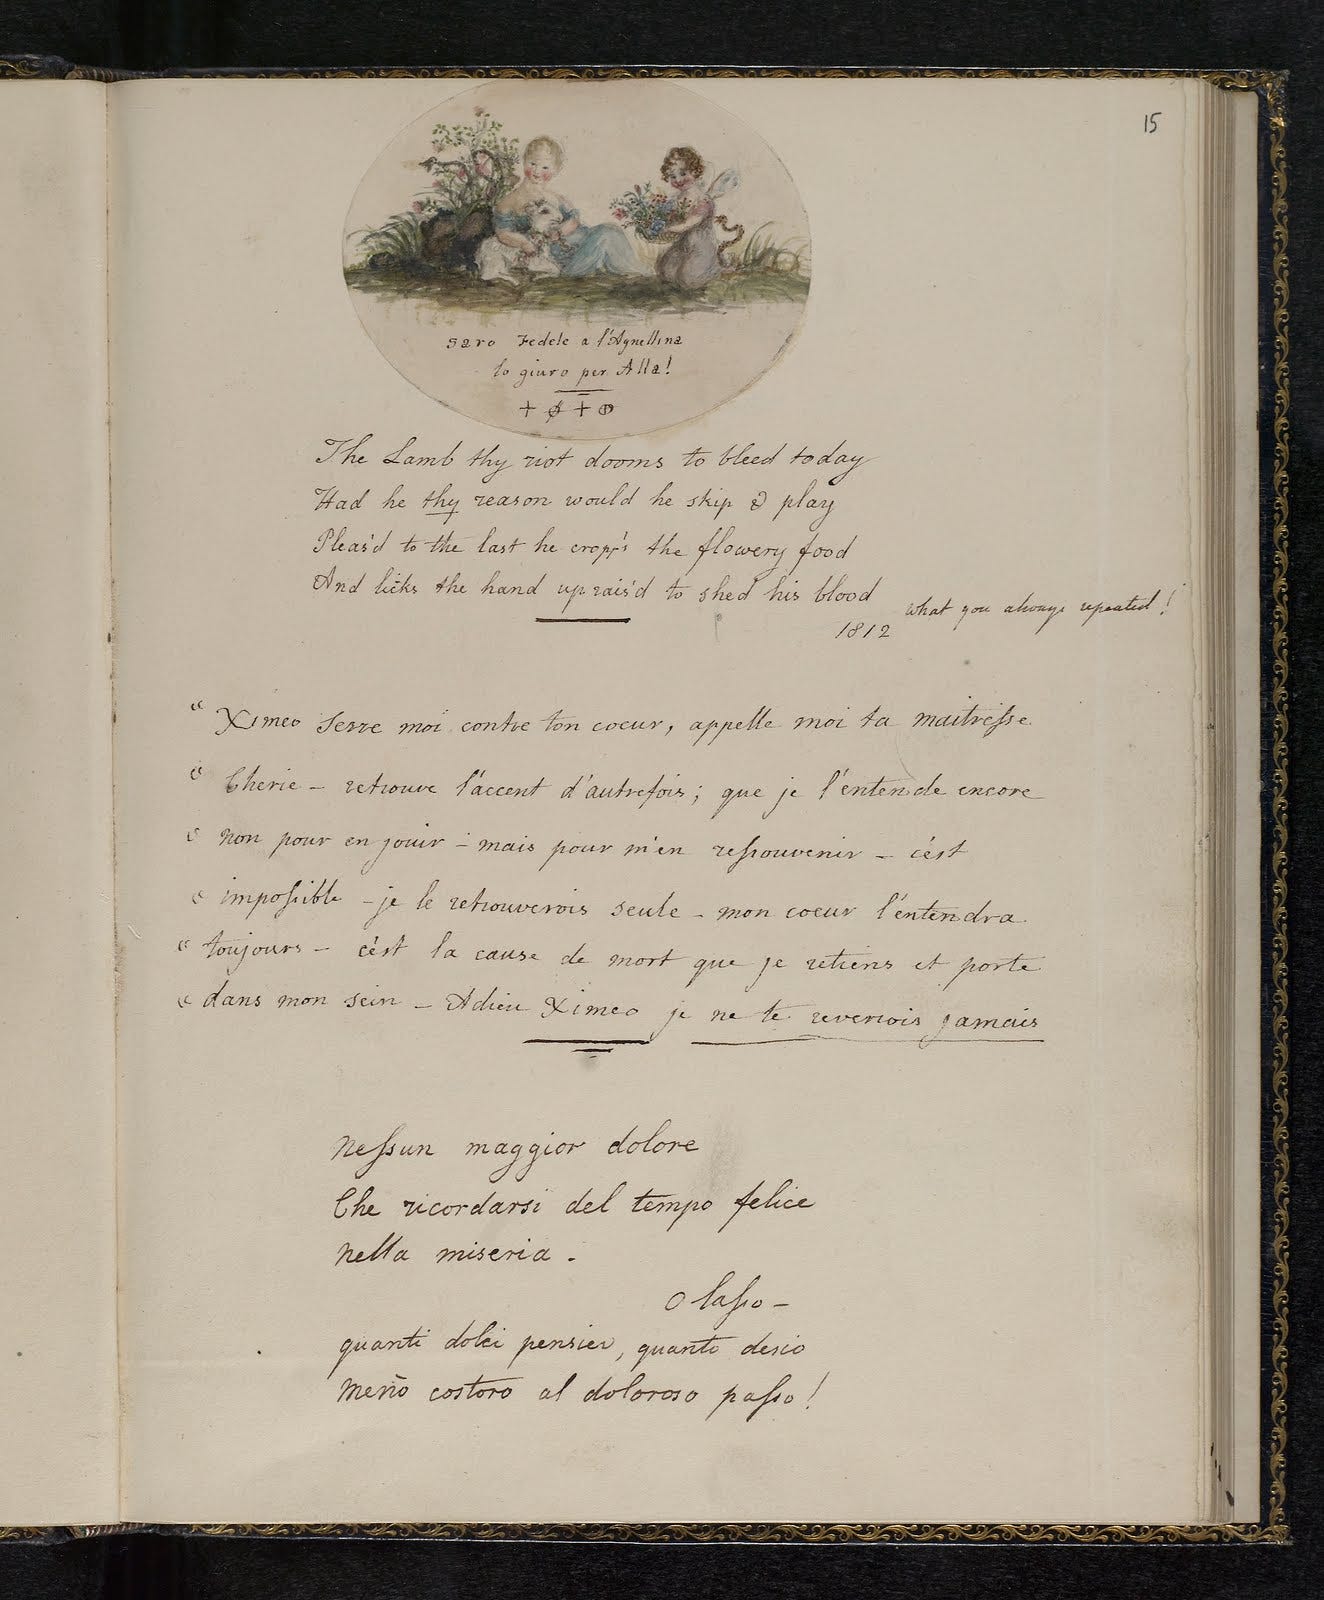 15
saro Fedele a l'Agnellina
lo giuro per Alla!
The Lamb thy riot dooms to bleed today
Had he thy reason would he skip & play
Pleas'd to the last he cropp's the flowery food
And licks the hand uprais'd to shed his blood
what you always repeated!
1812
" Ximeo serre moi contre ton coeur, appelle moi ta maitresse
" Cherie – retrouve l'accent d'autrefois; que je l'entende encore
" non pour en jouir – mais pour m'en ressouvenir – c'est
" impossible – je le retrouverois seule – mon coeur l'entendra
" toujours – c'est la cause de mort que je retiens et porte
" dans mon sein – Adieu Ximeo je ne te reverrois jamais
Nessun maggior dolore
Che ricordarsi del tempo felice
Nella miseria.
O lasso –
quanti dolci pensier, quanto desio
Meno costoro al doloroso passo!